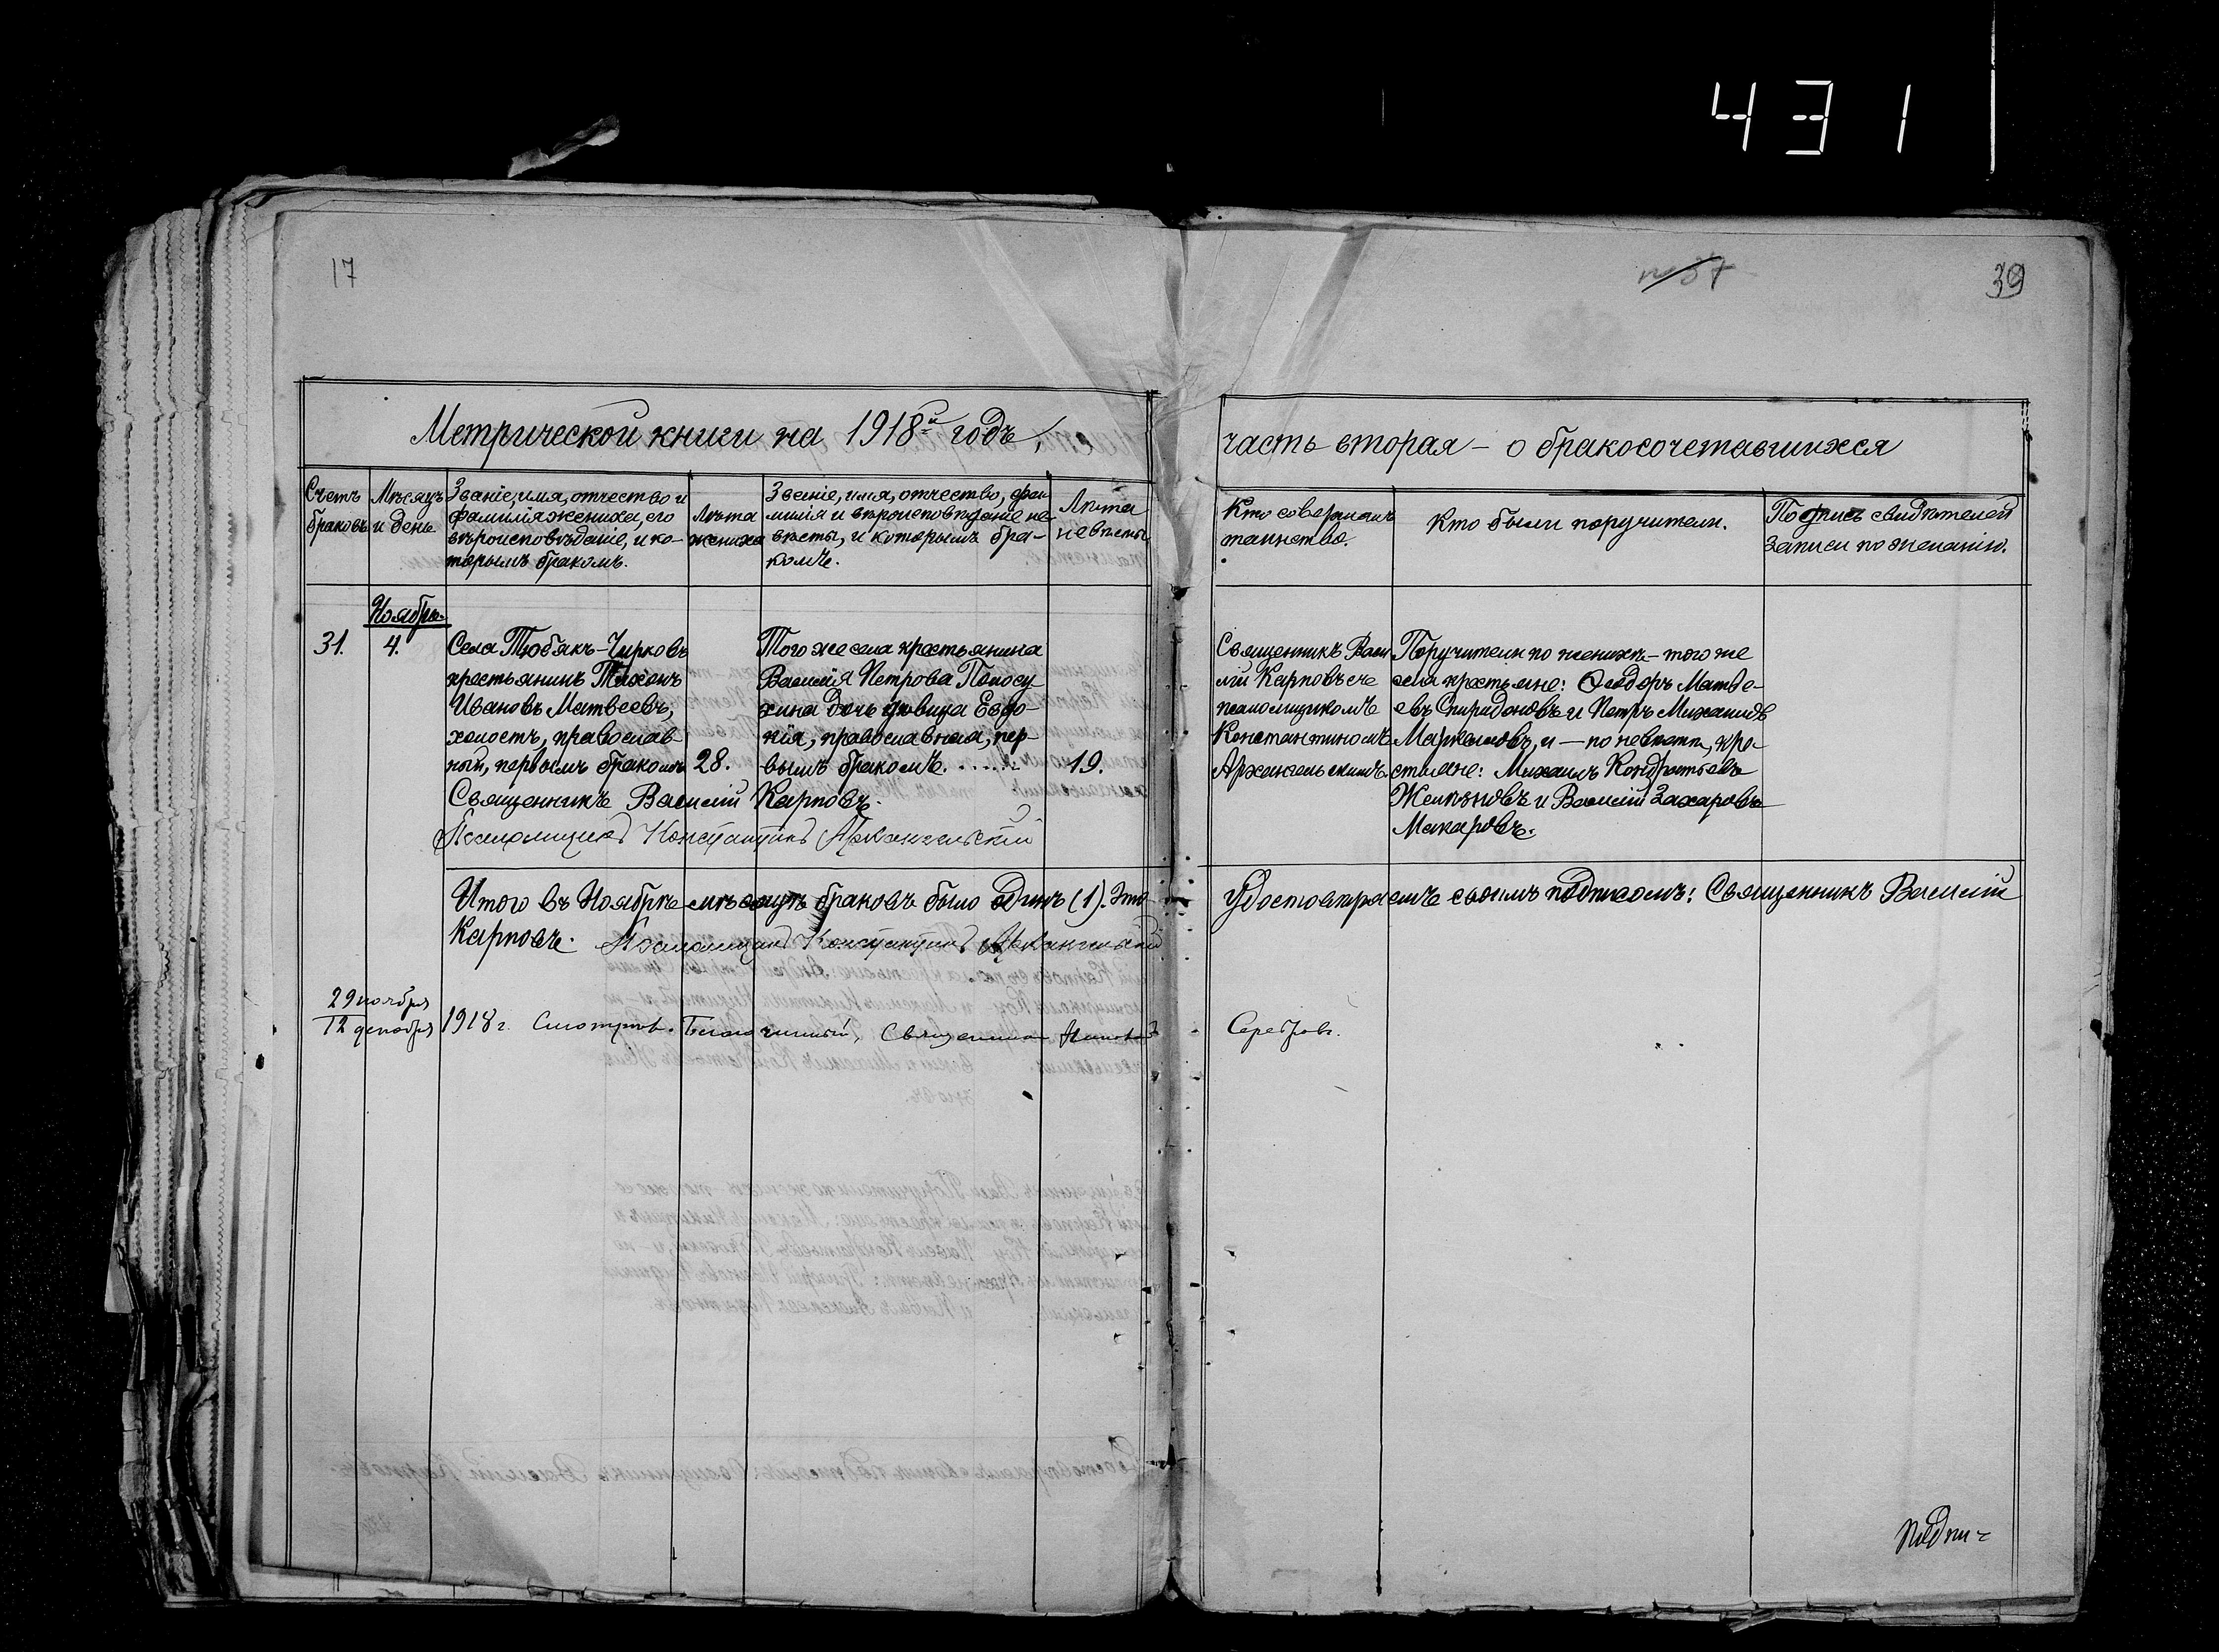 431
17
39
Метрической книги на 1918й годъ,
часть вторая – о бракосочетавшихся
Счетъ
браковъ
Мѣсяцъ
и день
Званіе, имя, отчество и
фамилія жениха, его
вѣроисповѣданіе, и ко-
торымъ бракомъ.
Лѣта
жениха
Званіе, имя, отчество, фа-
милія и вѣроисповѣданіе не-
вѣсты, и которымъ бра-
комъ.
Лѣта
невѣсты
Кто совершалъ
таинство.
Кто были поручители.
Подпись свидѣтелей
записи по желанію.
Ноябрь.
31.
4.
Села Тюбякъ-Чирковъ
крестьянинъ Тихонъ
Ивановъ Матвеевъ,
холостъ, православ-
ный, первымъ бракомъ
28.
Того же села крестьянина
Василія Петрова Полосу-
хина дочь дѣвица Евдо-
кія, православная, пер-
вымъ бракомъ.
19.
Священникъ Васи
лій Карповъ съ
псаломщикомъ
Константиномъ
Архангельскимъ
Поручители по женихѣ – того же
села крестьяне: Ѳеодоръ Матве-
евъ Спиридоновъ и Петръ Михаиловъ
Маркеловъ, и – по невѣстѣ, кре-
стьяне: Михаилъ Кондратьевъ
Желѣзновъ и Василій Захаровъ
Макаровъ.
Священникъ Василій Карповъ.
Псаломщикъ Константинъ Архангельскій
Итого въ Ноябрѣ мѣсяцѣ браковъ было одинъ (1). Это
удостовѣряемъ своимъ подписомъ: Священникъ Василій
Карповъ. Псаломщикъ Константинъ Архангельскій
29 ноября
12 декабря 1918 г. Смотрѣлъ. Благочинный, Священникъ
Серебровъ.